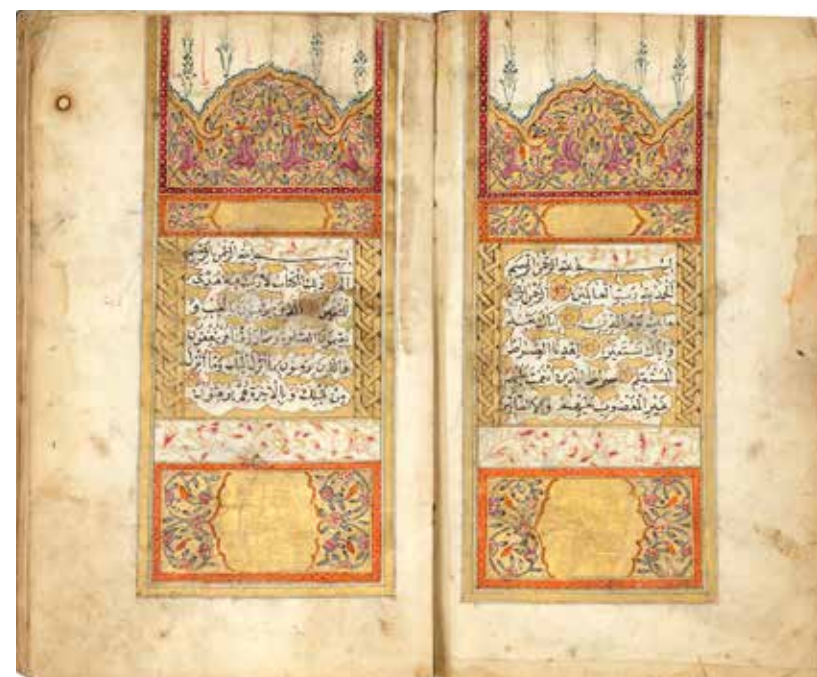 بسم الله الرحمن الرحيم
الحمد لله رب العالمين الرحمن الرحيم
مالك يوم الدين اياك نعبد
واياك نستعين اهدنا الصراط
المستقيم صراط الذين انعمت عليهم
غير المغضوب عليهم ولا الضالين
بسم الله الرحمن الرحيم
الم ذلك الكتاب لا ريب فيه هدى
للمتقين الذين يؤمنون بالغيب و
يقيمون الصلوة ومما رزقناهم ينفقون
والذين يؤمنون بما انزل اليك وما انزل
من قبلك وبالاخرة هم يوقنون